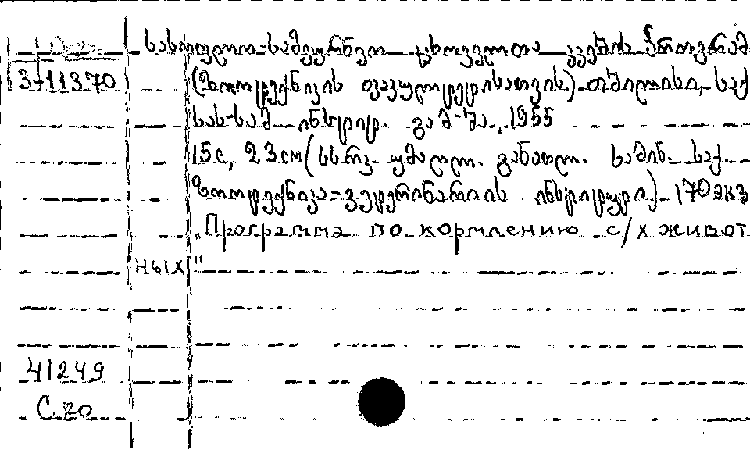 სასოფლო-სამეურნეო ცხოველთა კვების პროგრამ
3-11370 (ზოოტექნიკის ფაკულტეტისათვის) თბილისი, საქ
სას-სამ ინსტიტ. გამ-მა, 1955
15с, 23см (სსრკ უმაღლ. განათლ. სამინ. საქ.
ზოოტექნიკა-ვეტერინარიის ინსტიტუტი) 170 экз
„Программа по кормлению с/х живот
ных"
41249
С.20